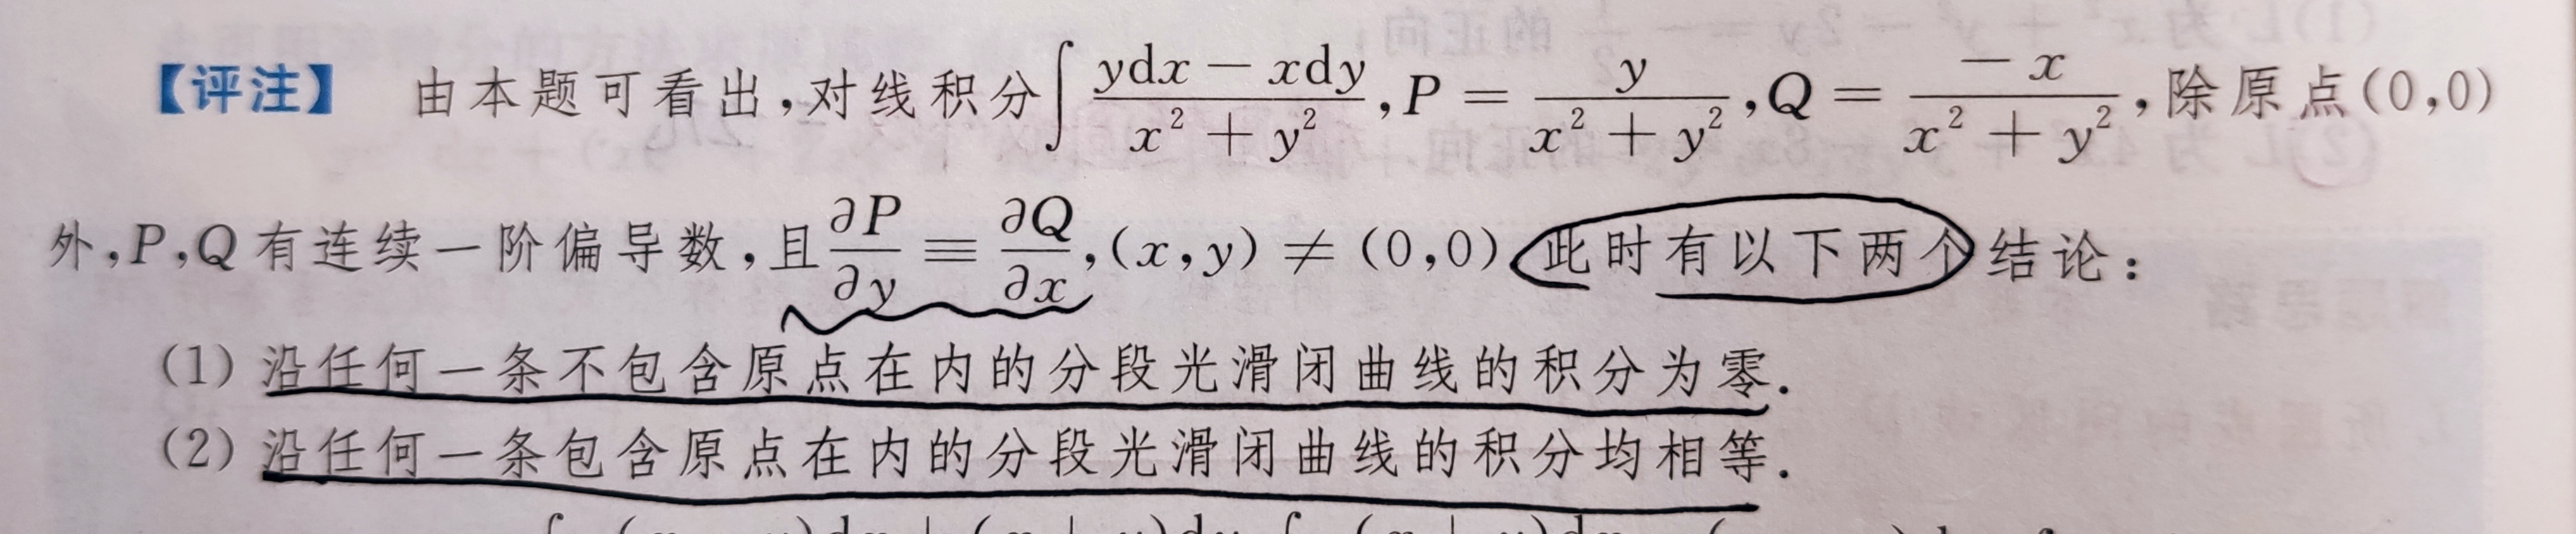 【评注】 由本题可看出,对线积分∫ (ydx − xdy)/(x² + y²), P = y/(x² + y²), Q = −x/(x² + y²), 除原点(0,0)
外,P,Q有连续一阶偏导数,且 ∂P/∂y ≡ ∂Q/∂x, (x,y) ≠ (0,0) 此时有以下两个结论:
(1) 沿任何一条不包含原点在内的分段光滑闭曲线的积分为零.
(2) 沿任何一条包含原点在内的分段光滑闭曲线的积分均相等.